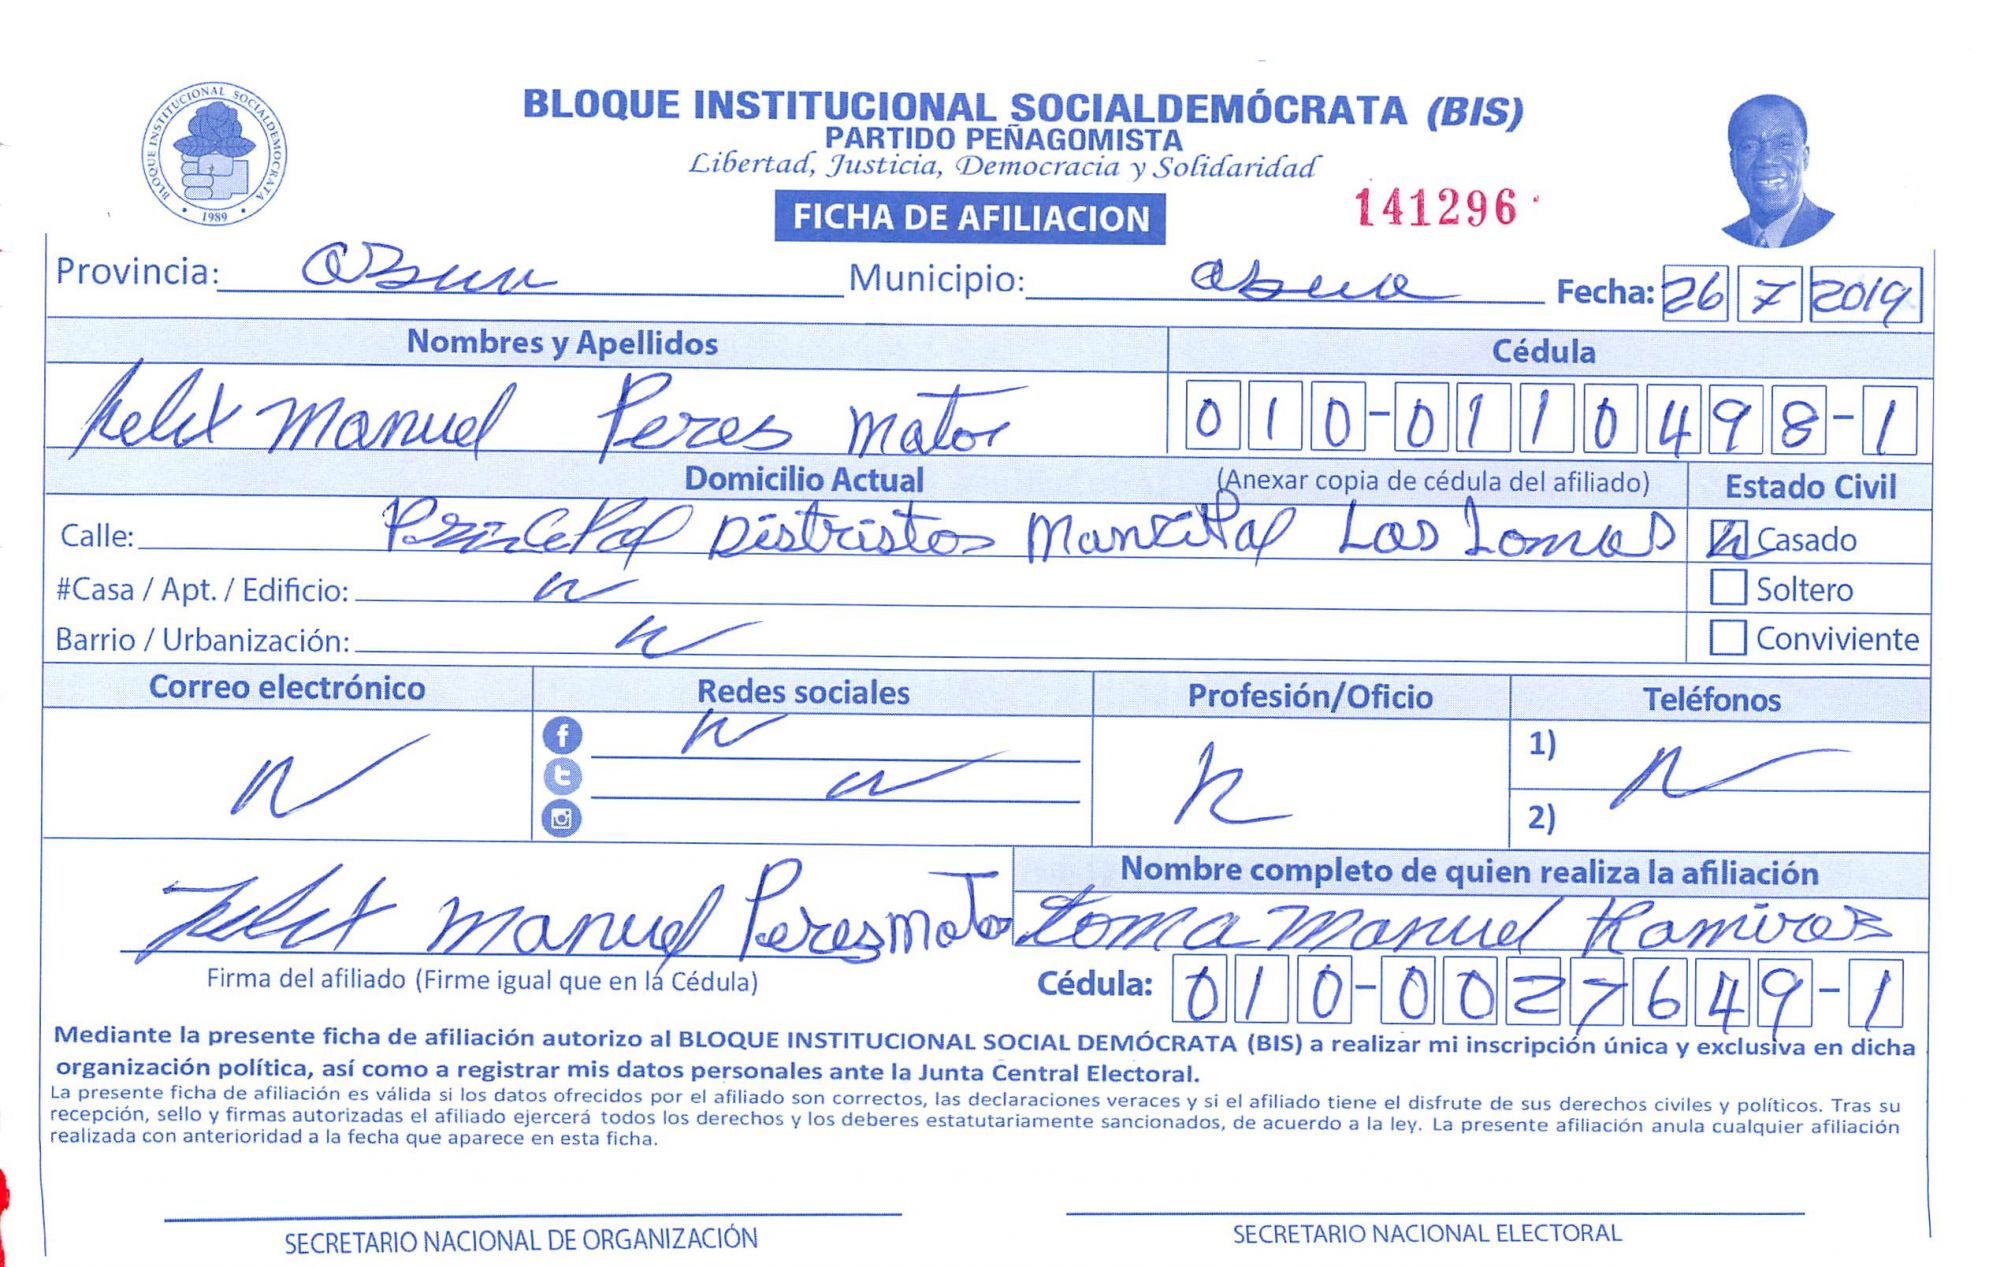 BLOQUE INSTITUCIONAL SOCIALDEMOCRATA
1989
BLOQUE INSTITUCIONAL SOCIALDEMÓCRATA (BIS)
PARTIDO PEÑAGOMISTA
Libertad, Justicia, Democracia y Solidaridad
FICHA DE AFILIACION
141296
Provincia: Azua Municipio: Azua Fecha: 26 7 2019
Nombres y Apellidos Cédula
Felix Manuel Peres Mator 010-0110498-1
Domicilio Actual (Anexar copia de cédula del afiliado) Estado Civil
Calle: Principal Distristos Manzipal Las Lomas Casado
#Casa / Apt. / Edificio: N Soltero
Barrio / Urbanización: N Conviviente
Correo electrónico Redes sociales Profesión/Oficio Teléfonos
N N N 1) N
N 2)
Nombre completo de quien realiza la afiliación
Felix Manuel Peres Mator Loma Manuel Ramires
Firma del afiliado (Firme igual que en la Cédula) Cédula: 010-0027649-1
Mediante la presente ficha de afiliación autorizo al BLOQUE INSTITUCIONAL SOCIAL DEMÓCRATA (BIS) a realizar mi inscripción única y exclusiva en dicha
organización política, así como a registrar mis datos personales ante la Junta Central Electoral.
La presente ficha de afiliación es válida si los datos ofrecidos por el afiliado son correctos, las declaraciones veraces y si el afiliado tiene el disfrute de sus derechos civiles y políticos. Tras su
recepción, sello y firmas autorizadas el afiliado ejercerá todos los derechos y los deberes estatutariamente sancionados, de acuerdo a la ley. La presente afiliación anula cualquier afiliación
realizada con anterioridad a la fecha que aparece en esta ficha.
SECRETARIO NACIONAL DE ORGANIZACIÓN SECRETARIO NACIONAL ELECTORAL